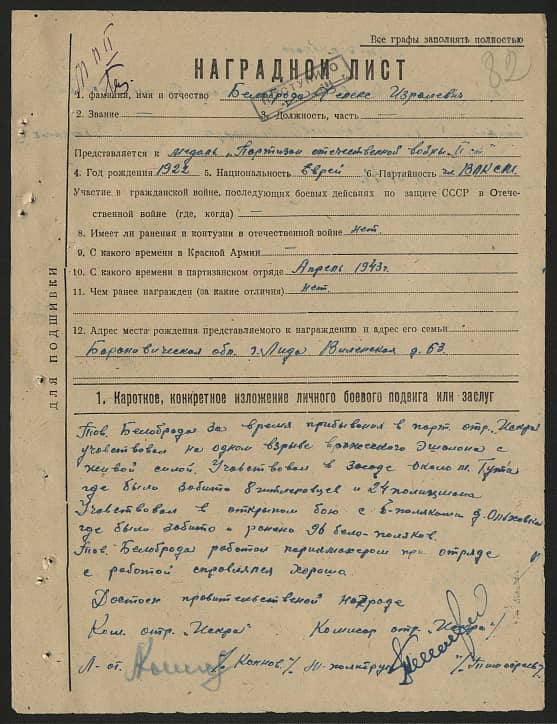 Все графы заполнять полностью
82
НАГРАДНОЙ ЛИСТ
ПОСТУПИЛО
1. фамилия, имя и отчество Белоброда Феликс Израилевич
2. Звание — 3. Должность, часть —
Представляется к медаль „Партизан отечественной войны" II ст
4. Год рождения 1922 5. Национальность Еврей 6. Партийность чл ВЛКСМ
Участие в гражданской войне, последующих боевых действиях по защите СССР в Отече-
ственной войне (где, когда) —
8. Имеет ли ранения и контузии в отечественной войне нет.
9. С какого времени в Красной Армии —
10. С какого времени в партизанском отряде Апрель 1943г.
11. Чем ранее награжден (за какие отличия) нет.
12. Адрес места рождения представляемого к награждению и адрес его семьи
Барановическая обл. г. Лида Виленская д. 63
ДЛЯ ПОДШИВКИ
1. Короткое, конкретное изложение личного боевого подвига или заслуг
Тов. Белоброда за время прибывания в парт. отр. „Искра"
учавствовал на одном взрыве вражеского эшалона с
живой силой. Учавствовал в засаде около м. Гута
где было забито 8 гитлеровцев и 24 полицмана
Учавствовал в открытом бою с б-поляками д. Ольховка
где было забито и ранено 96 бело-поляков.
Тов. Белоброда работал парикмахером при отряде
с работой справлялся хорошо
Достоен правительственой награде
Ком. отр. „Искра" Комисар отр. „Искра"
Л-от.